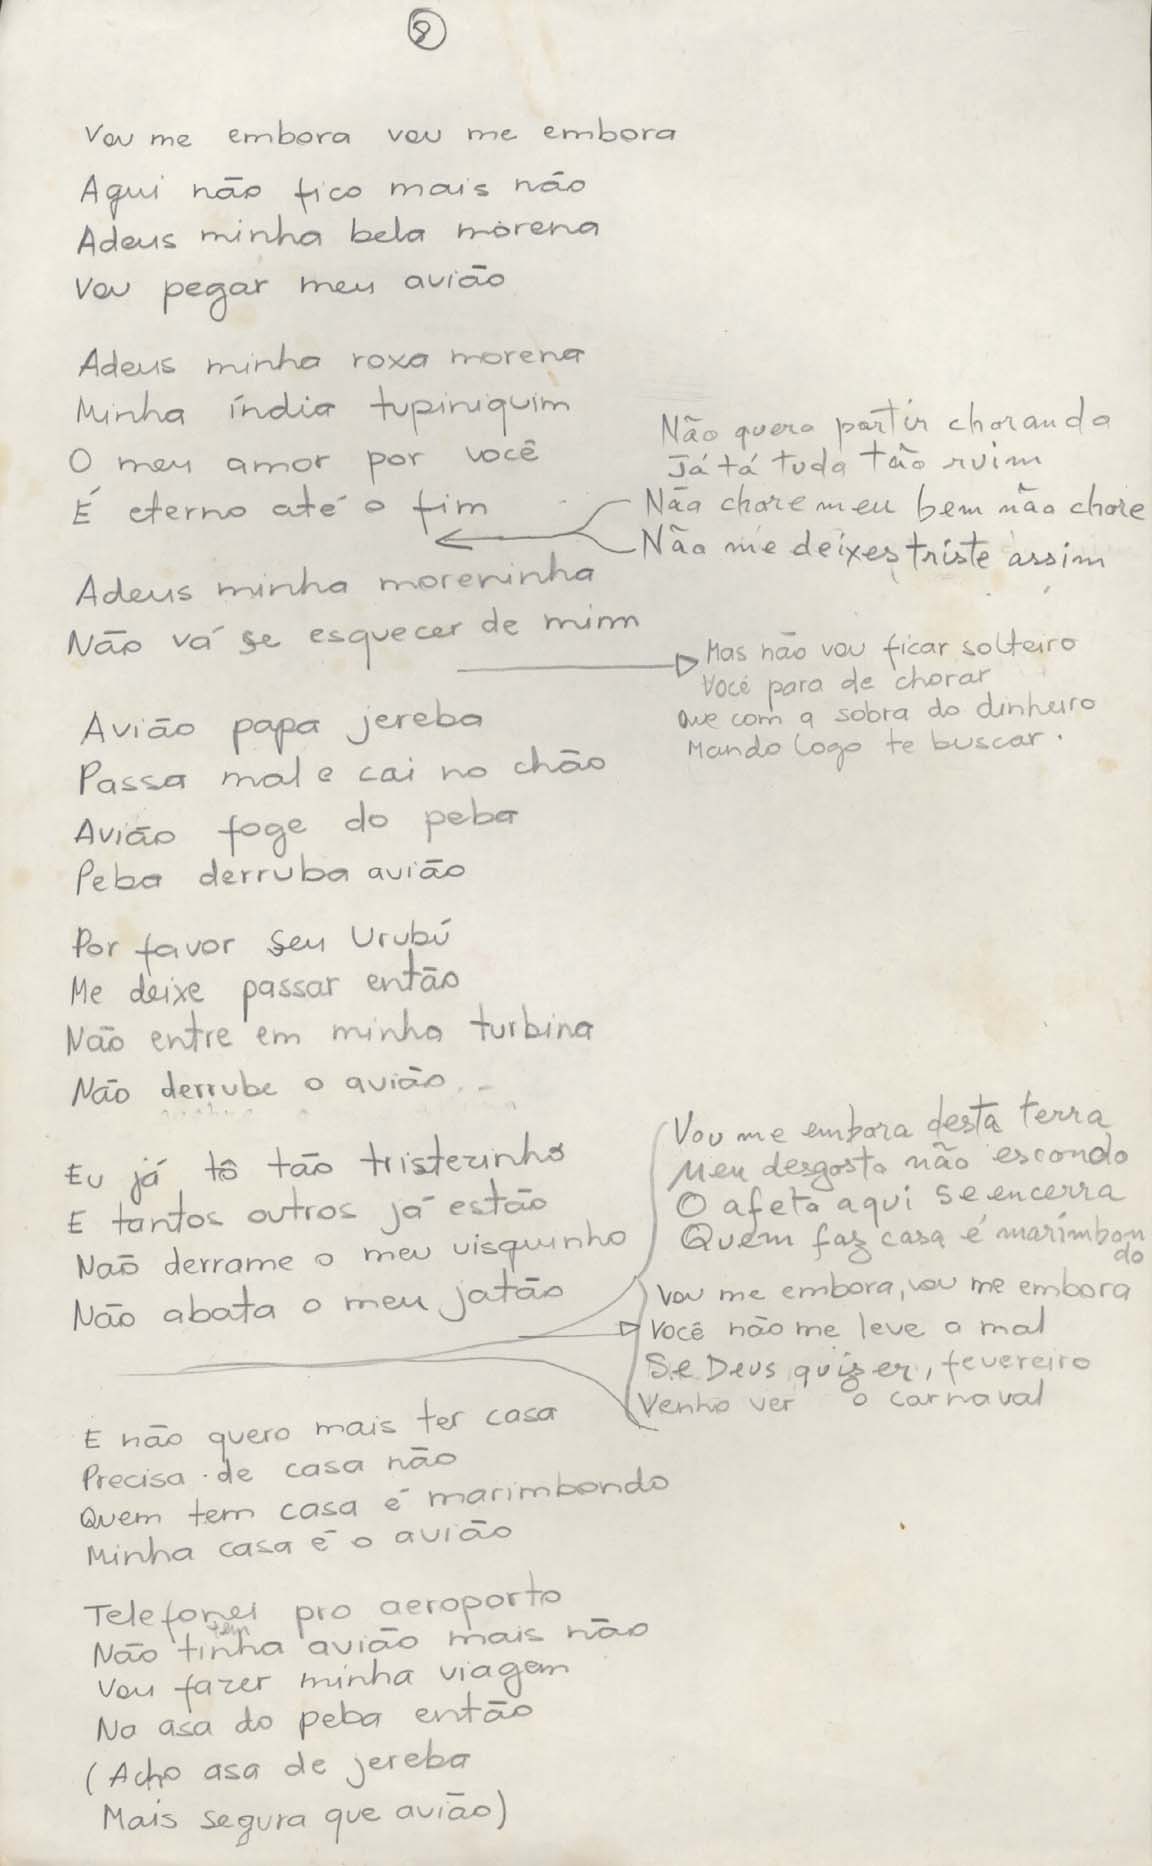 8
Vou me embora vou me embora
Aqui não fico mais não
Adeus minha bela morena
Vou pegar meu avião
Adeus minha roxa morena
Minha índia tupiniquim
O meu amor por você
É eterno até o fim
Não quero partir chorando
Já tá tudo tão ruim
Não chore meu bem não chore
Não me deixes triste assim
Adeus minha moreninha
Não vá se esquecer de mim
Mas não vou ficar solteiro
Você para de chorar
Que com a sobra do dinheiro
Mando logo te buscar.
Avião papa jereba
Passa mal e cai no chão
Avião foge do peba
Peba derruba avião
Por favor seu Urubú
Me deixe passar então
Não entre em minha turbina
Não derrube o avião
Eu já tô tão tristezinho
E tantos outros já estão
Não derrame o meu uisquinho
Não abata o meu jatão
Vou me embora desta terra
Meu desgosto não escondo
O afeto aqui se encerra
Quem faz casa é marimbon
do
Vou me embora, vou me embora
Você não me leve a mal
Se Deus quizer, fevereiro
Venho ver o carnaval
E não quero mais ter casa
Precisa de casa não
Quem tem casa é marimbondo
Minha casa é o avião
Telefonei pro aeroporto
tem
Não tinha avião mais não
Vou fazer minha viagem
Na asa do peba então
(Acho asa de jereba
Mais segura que avião)